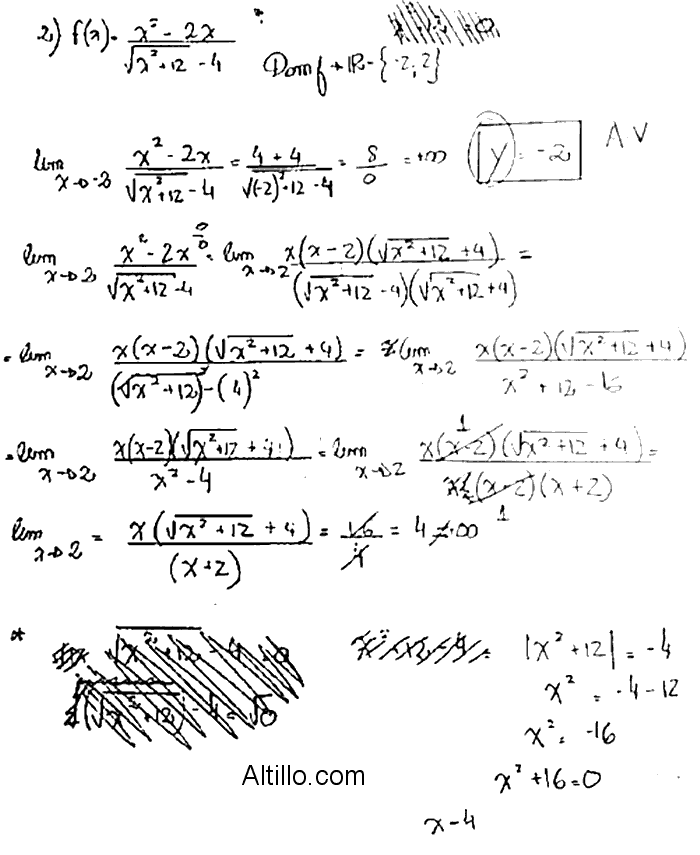 2) f(x) = x² - 2x / √(x²+12) - 4 *
Dom f → IR - {-2, 2}
lim x→-2 x² - 2x / √(x²+12) - 4 = 4 + 4 / √((-2)²+12) - 4 = 8/0 = +∞ y = -2 A V
lim x→2 x² - 2x / √(x²+12) - 4 0/0 = lim x→2 x(x-2)(√(x²+12) + 4) / (√(x²+12) - 4)(√(x²+12) + 4) =
= lim x→2 x(x-2)(√(x²+12) + 4) / (√(x²+12)) - (4)² = lim x→2 x(x-2)(√(x²+12) + 4) / x² + 12 - 16
= lim x→2 x(x-2)(√(x²+12) + 4) / x² - 4 = lim x→2 x(x-2)(√(x²+12) + 4) / (x-2)(x+2) =
lim x→2 = x(√(x²+12) + 4) / (x+2) = 16/4 = 4 ≠ +∞
*
|x² + 12| = -4
x² = -4 - 12
x² = -16
x² + 16 = 0
x - 4
Altillo.com